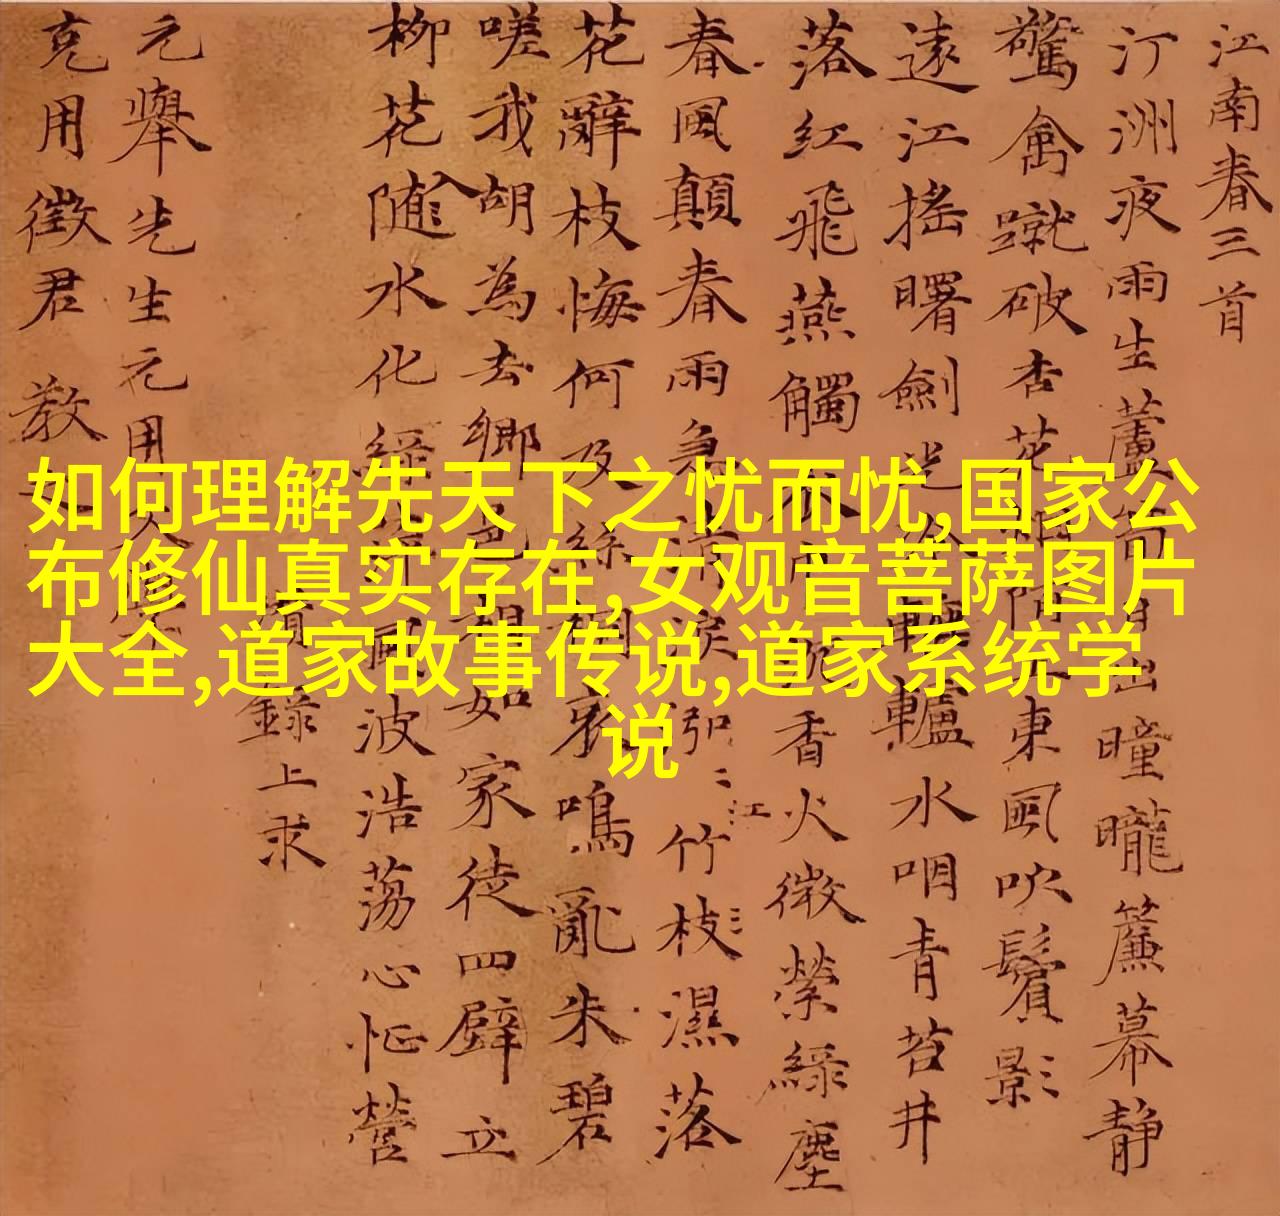 江南春三首
汀洲夜雨生蘆筍日出曈曨簾幕静
驚禽蹴破杏花東風吹鬢影
遠江搖曙劍光轆轤水咽青苔井
落紅飛燕觸香火微縈緑塵
春風顛春雨急清淚泓〻江〻竹枝〻濕落
花辭枝悔何及絲桐哀鳴亂朱碧
嗟我胡為去鄉邑相如家徒四壁立
柳花随入水化緑風波浩蕩心怔營
錄上求
元舉先生元用
克用徵君 教
如何理解先天下之忧而忧,国家公
布修仙真实存在,女观音菩萨图片
大全,道家故事传说,道家系统学
说